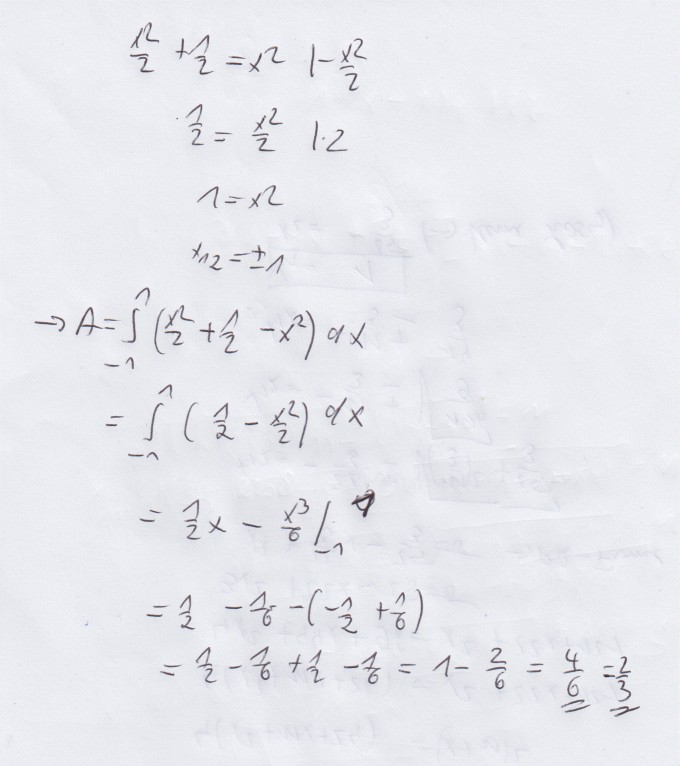 x²/2 + 1/2 = x² |- x²/2
1/2 = x²/2 |·2
1 = x²
x₁₂ = ±1
→ A = ∫₋₁¹ (x²/2 + 1/2 - x²) dx
= ∫₋₁¹ (1/2 - x²/2) dx
= 1/2 x - x³/6 |₋₁¹
= 1/2 - 1/6 - (-1/2 + 1/6)
= 1/2 - 1/6 + 1/2 - 1/6 = 1 - 2/6 = 4/6 = 2/3